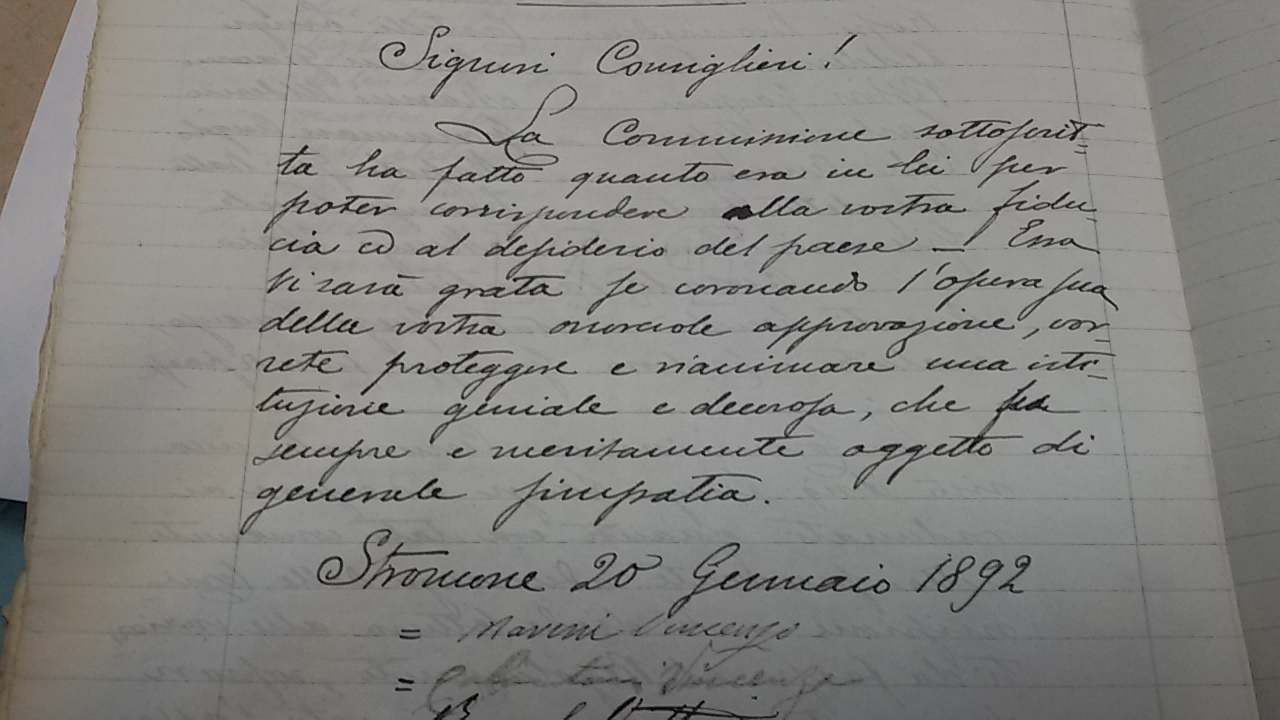 Signori Consiglieri!
La Commissione sottoscrit=
ta ha fatto quanto era in lei per
poter corrispondere alla vostra fidu-
cia ed al desiderio del paese _ Essa
Vi sarà grata se coronando l'opera sua
della vostra autorevole approvazione, vor-
rete proteggere e rianimare una isti=
tuzione geniale e decorosa, che fu
sempre e meritamente oggetto di
generale simpatia.
Stroncone 20 Gennaio 1892
= Marini Vincenzo
= Vincenzo